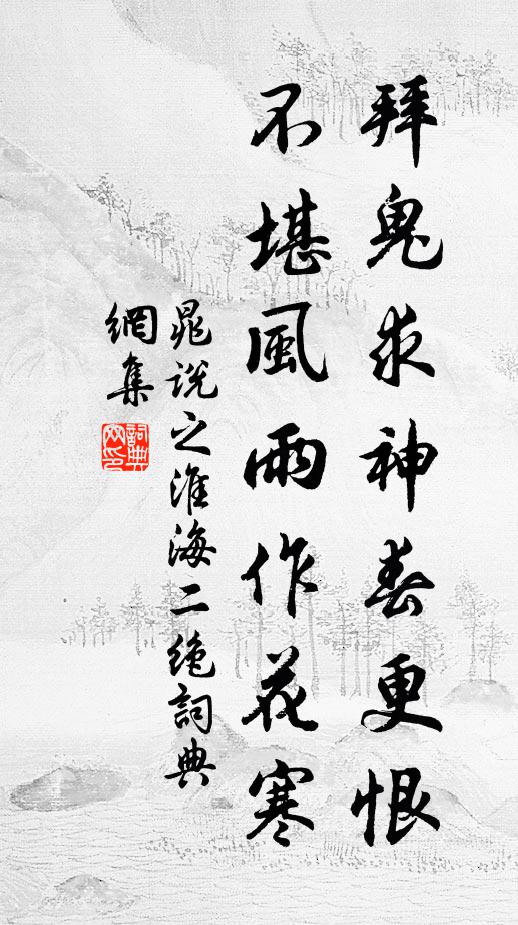 拜鬼求神春更恨
不堪風雨作花寒
晁説之淮海二绝詞典
網集
詞典網印